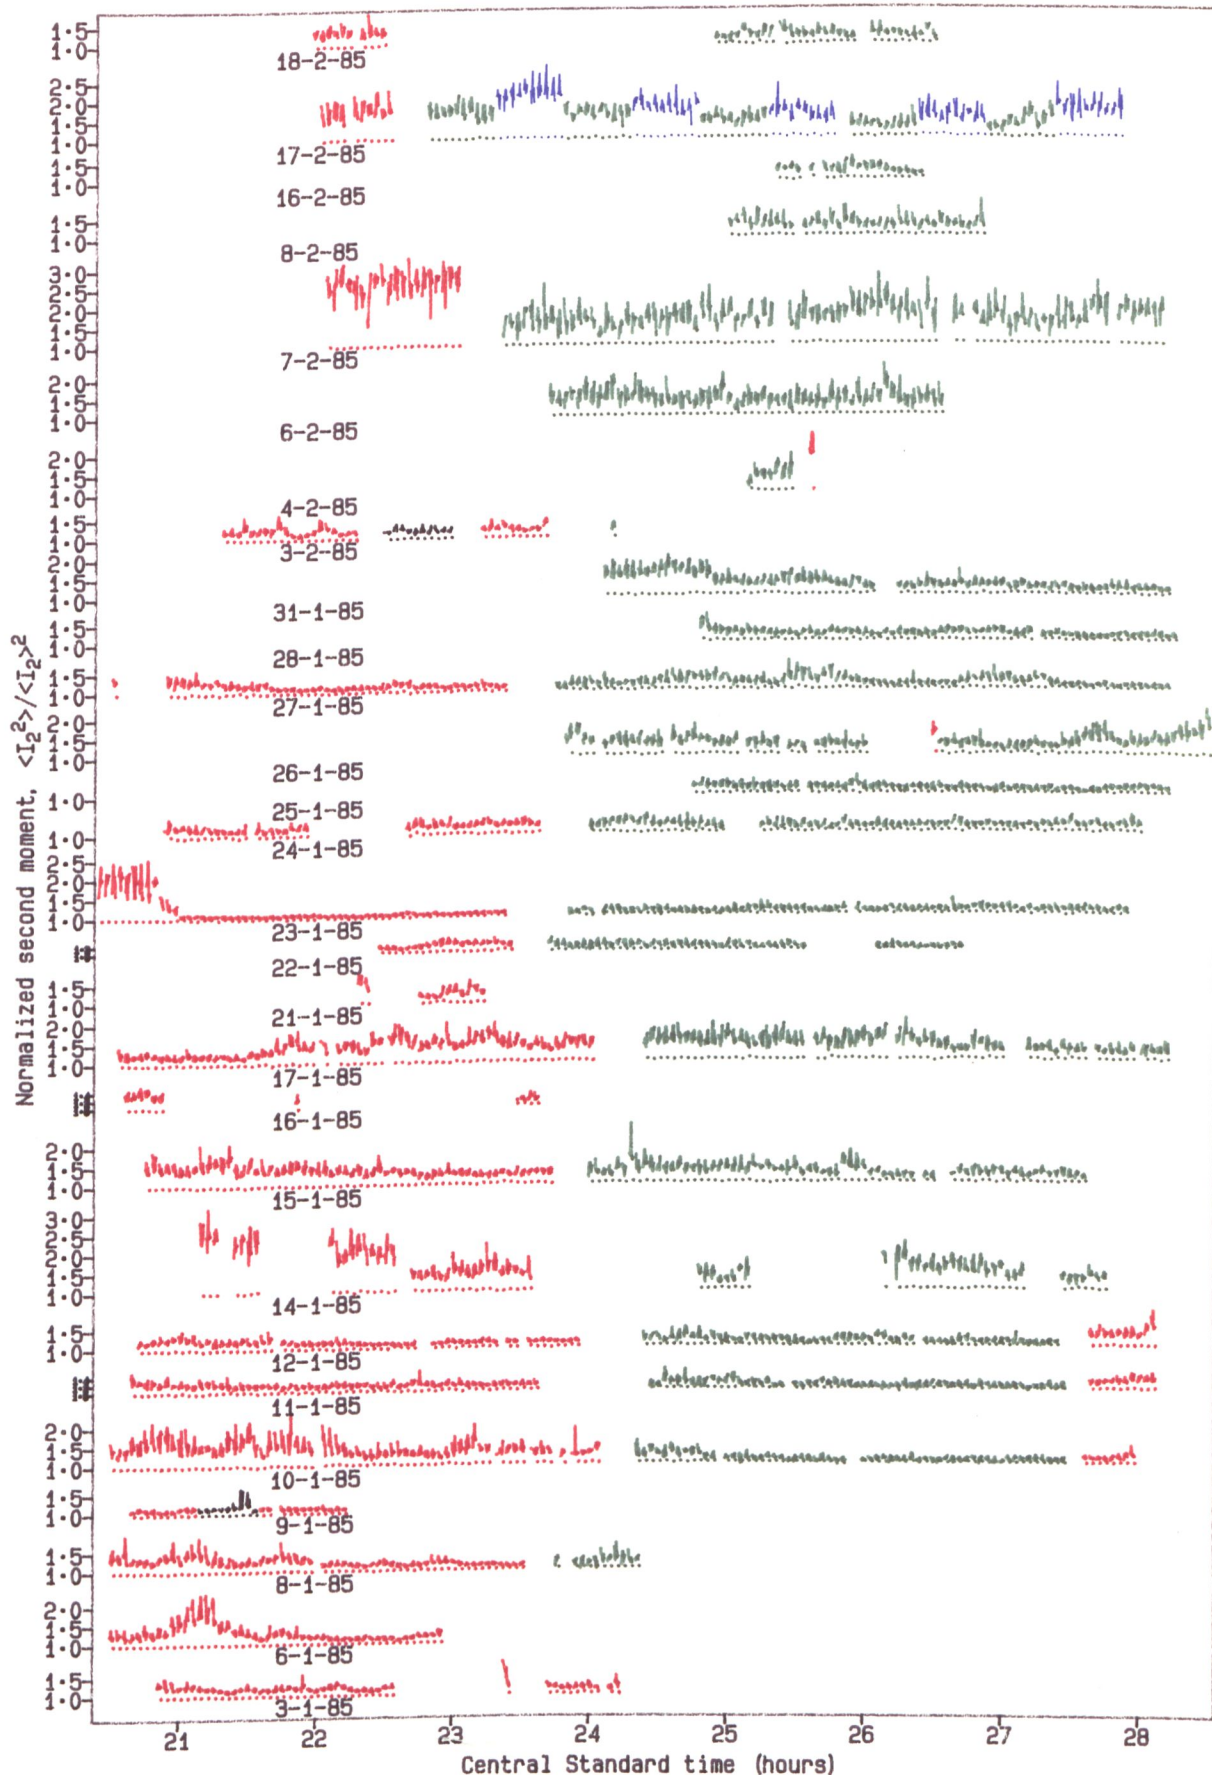 1·5
1·0
18-2-85
2·5
2·0
1·5
1·0
17-2-85
1·5
1·0
16-2-85
1·5
1·0
8-2-85
3·0
2·5
2·0
1·5
1·0
7-2-85
2·0
1·5
1·0
6-2-85
2·0
1·5
1·0
4-2-85
1·5
1·0
3-2-85
2·0
1·5
1·0
31-1-85
1·5
1·0
28-1-85
1·5
1·0
27-1-85
2·0
1·5
1·0
26-1-85
1·0
25-1-85
1·0
24-1-85
2·5
2·0
1·5
1·0
23-1-85
22-1-85
1·5
1·0
21-1-85
2·0
1·5
1·0
17-1-85
16-1-85
2·0
1·5
1·0
15-1-85
3·0
2·5
2·0
1·5
1·0
14-1-85
1·5
1·0
12-1-85
11-1-85
2·0
1·5
1·0
10-1-85
1·5
1·0
9-1-85
1·5
1·0
8-1-85
2·0
1·5
1·0
6-1-85
1·5
1·0
3-1-85
Normalized second moment, <I₂²>/<I₂>²
21 22 23 24 25 26 27 28
Central Standard time (hours)